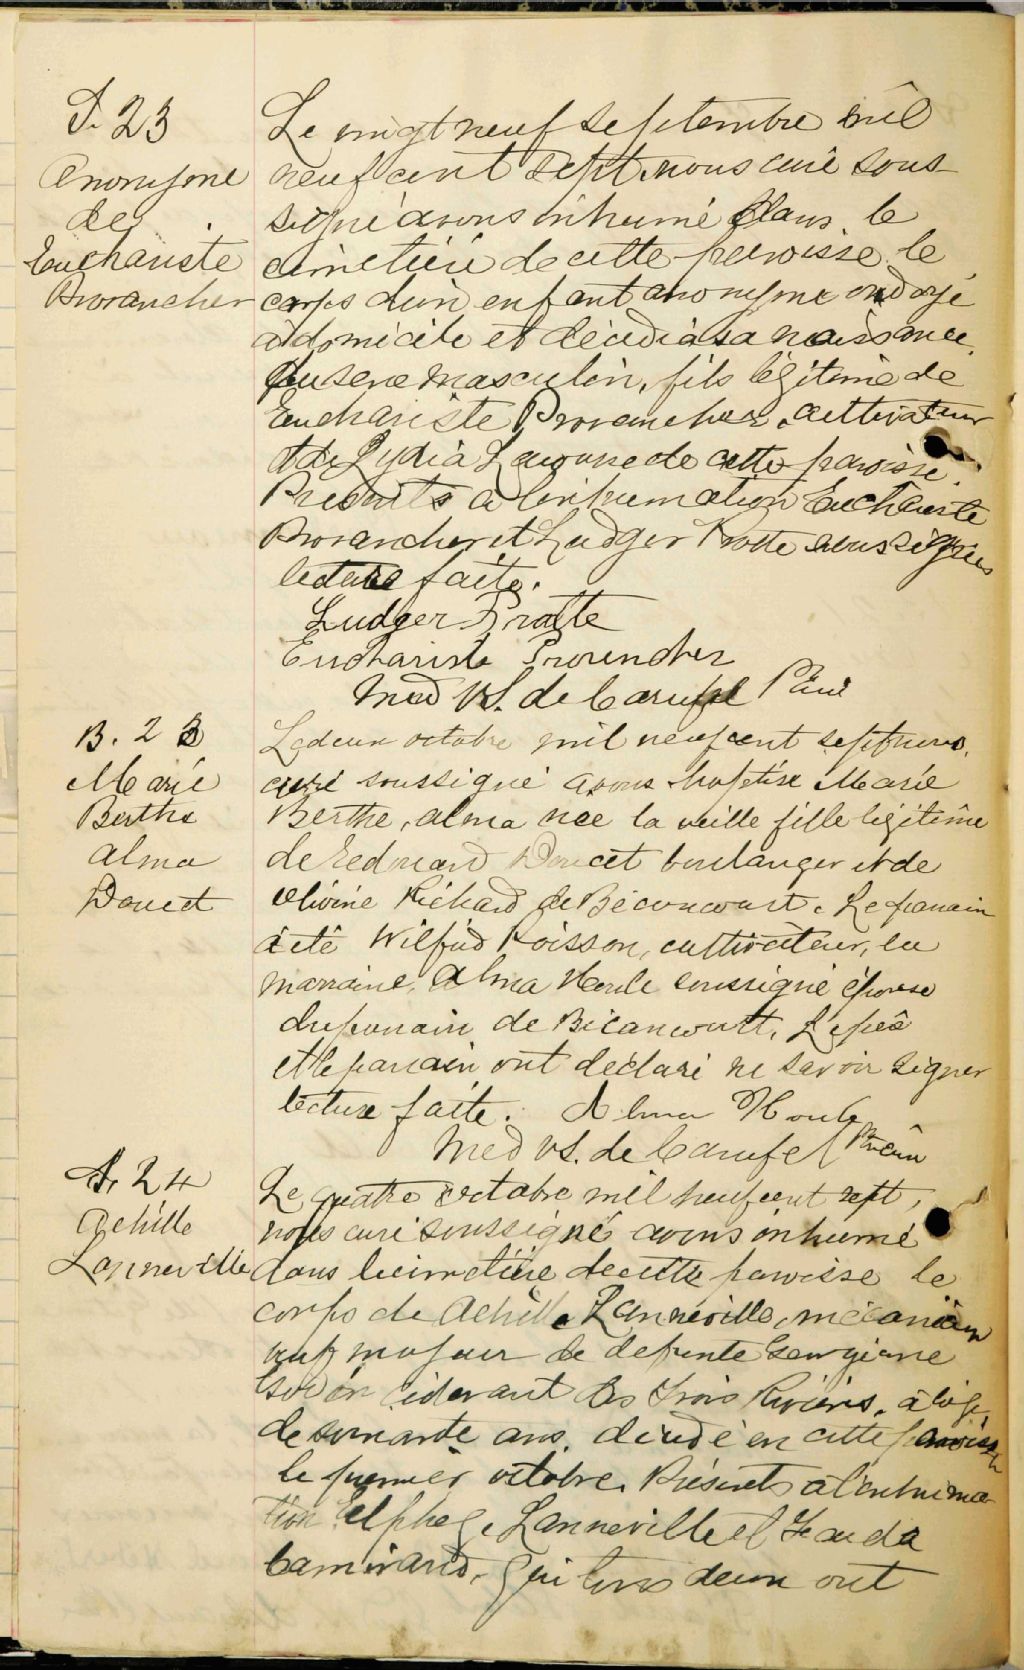 S. 23
Anonyme
de
Euchariste
Provancher
Le vingt neuf septembre mil
neuf cent sept, nous curé sous-
signé avons inhumé dans le
cimetière de cette paroisse le
corps d'un enfant anonyme ondoyé
à domicile et décédé à sa naissance
du sexe masculin, fils légitime de
Euchariste Provancher, cultivateur
et de Lydia de cette paroisse.
Présents à l'inhumation Euchariste
Provancher et Ludger Protte soussignés
lecture faite.
Ludger Pratte
Euchariste Provencher
Med vS. de Carufel Ptre curé
B. 23
Marie
Berthe
Alma
Doucet
Le deux octobre mil neuf cent sept nous,
curé soussigné avons baptisé Marie
Berthe, Alma née la veille fille légitime
de Edouard Doucet boulanger et de
Olivine Richard de Bécancourt. Le parrain
a été Wilfrid Poisson, cultivateur, la
marraine, Alma Houle soussigné épouse
du parrain de Bécancourt. Le père
et le parrain ont déclaré ne savoir signer
lecture faite. Alma Houle
Med vS. de Carufel Ptre curé
S. 24
Achille
Lanneville
Le quatre octobre mil neuf cent sept,
nous curé soussigné avons inhumé
dans le cimetière de cette paroisse le
corps de Achille Lanneville, mécanicien
veuf majeur de defunte Georgianne
ci devant des Trois Rivières, à l'age
de soixante ans, décédé en cette paroisse
le premier octobre. Présents à l'inhuma-
tion Elphege Lanneville et
Camirand, qui tous deux ont